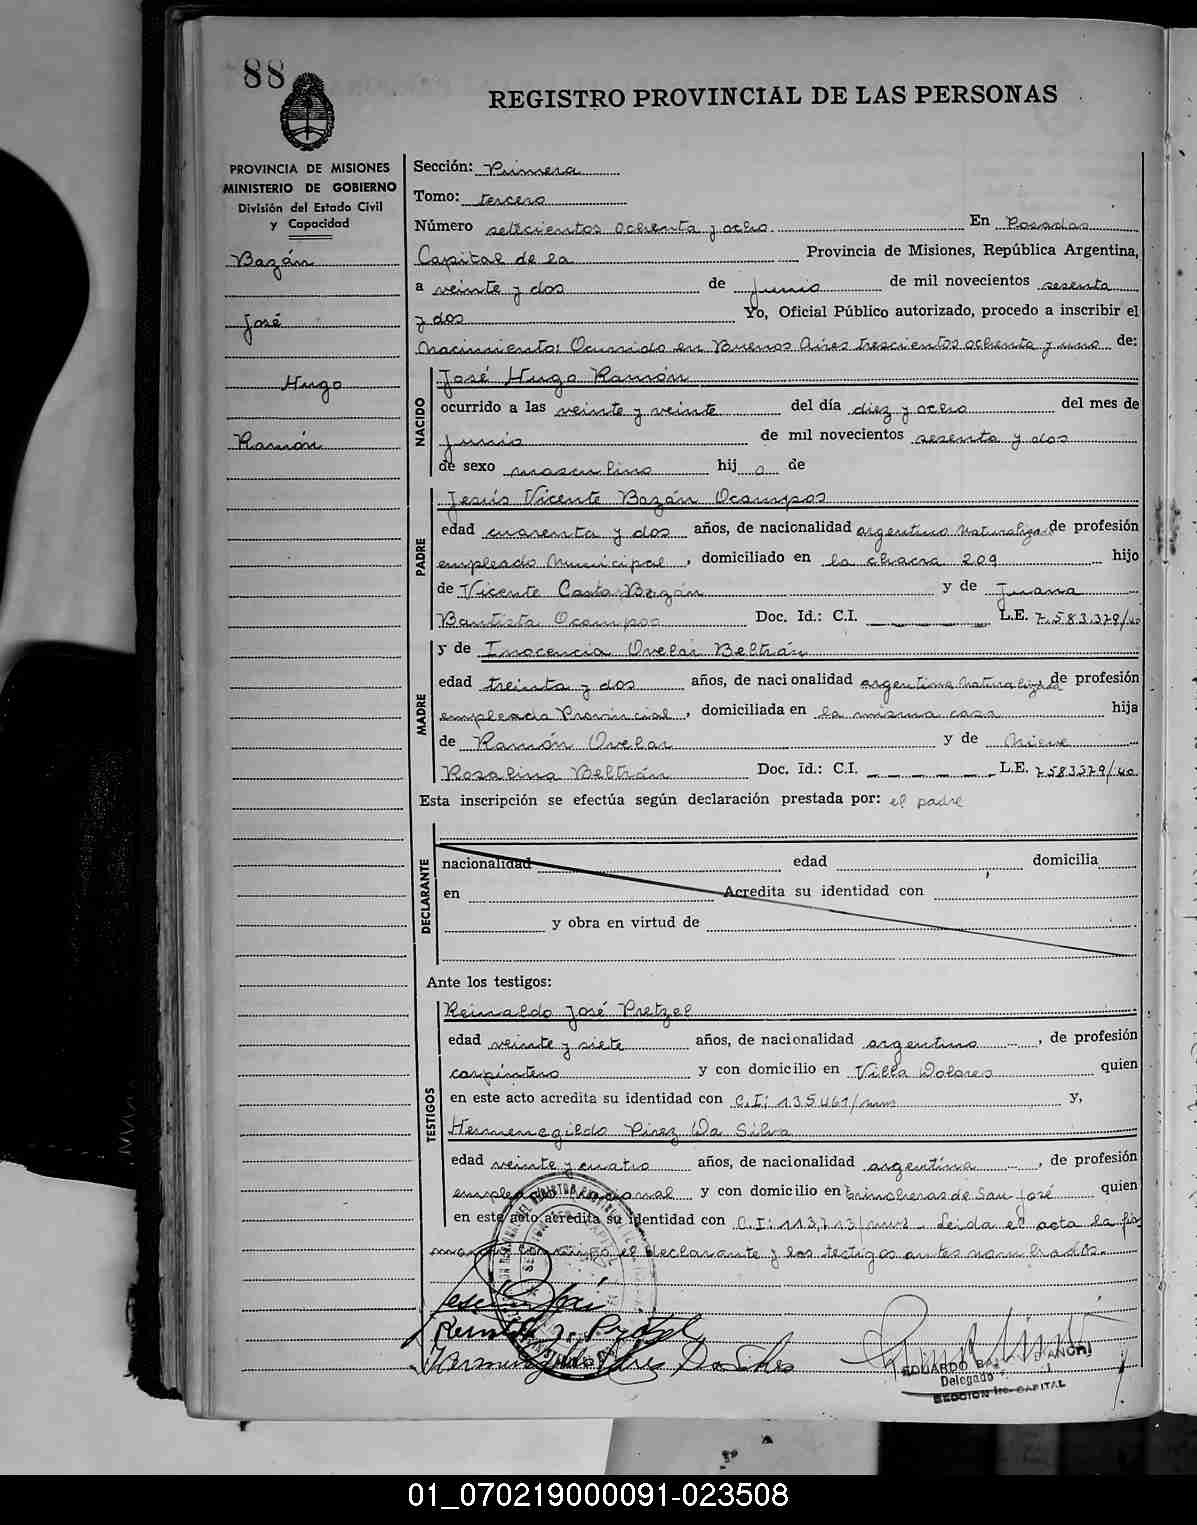 88
REGISTRO PROVINCIAL DE LAS PERSONAS
PROVINCIA DE MISIONES
MINISTERIO DE GOBIERNO
División del Estado Civil
y Capacidad
Bazán
José
Hugo
Ramón
Sección: Primera
Tomo: tercero
Número setecientos ochenta y ocho. En Posadas
Capital de la Provincia de Misiones, República Argentina,
a veinte y dos de Junio de mil novecientos sesenta
y dos Yo, Oficial Público autorizado, procedo a inscribir el
Nacimiento: Ocurrido en Buenos Aires trescientos ochenta y uno de:
NACIDO
José Hugo Ramón
ocurrido a las veinte y veinte del día diez y ocho del mes de
Junio de mil novecientos sesenta y dos
de sexo masculino hij o de
PADRE
Jesús Vicente Bazán Ocampos
edad cuarenta y dos años, de nacionalidad argentino Naturalizado de profesión
empleado Municipal, domiciliado en la chacra 209 hijo
de Vicente Casto Bazán y de Juana
Bautista Ocampos Doc. Id.: C.I. L.E. 7.583.379/40
MADRE
y de Inocencia Ovelar Beltrán
edad treinta y dos años, de nacionalidad argentina Naturalizada de profesión
empleada Provincial, domiciliada en la misma casa hija
de Ramón Ovelar y de Nieve
Rosalina Beltrán Doc. Id.: C.I. L.E. 7583379/40
Esta inscripción se efectúa según declaración prestada por: el padre
DECLARANTE
nacionalidad edad domicilia
en Acredita su identidad con
y obra en virtud de
Ante los testigos:
TESTIGOS
Reinaldo José Pretzel
edad veinte y siete años, de nacionalidad argentino, de profesión
carpintero y con domicilio en Villa Dolores quien
en este acto acredita su identidad con C.I: 135461/mns y,
Hermenegildo Pirez Da Silva
edad veinte y cuatro años, de nacionalidad argentina, de profesión
empleado Nacional y con domicilio en Trincheras de San José quien
en este acto acredita su identidad con C.I: 113,713/mns. Leida el acta la fir
man conmigo el declarante y los testigos antes nombrados.
EDUARDO
Delegado
SECCION 1ra. CAPITAL
01_070219000091-023508